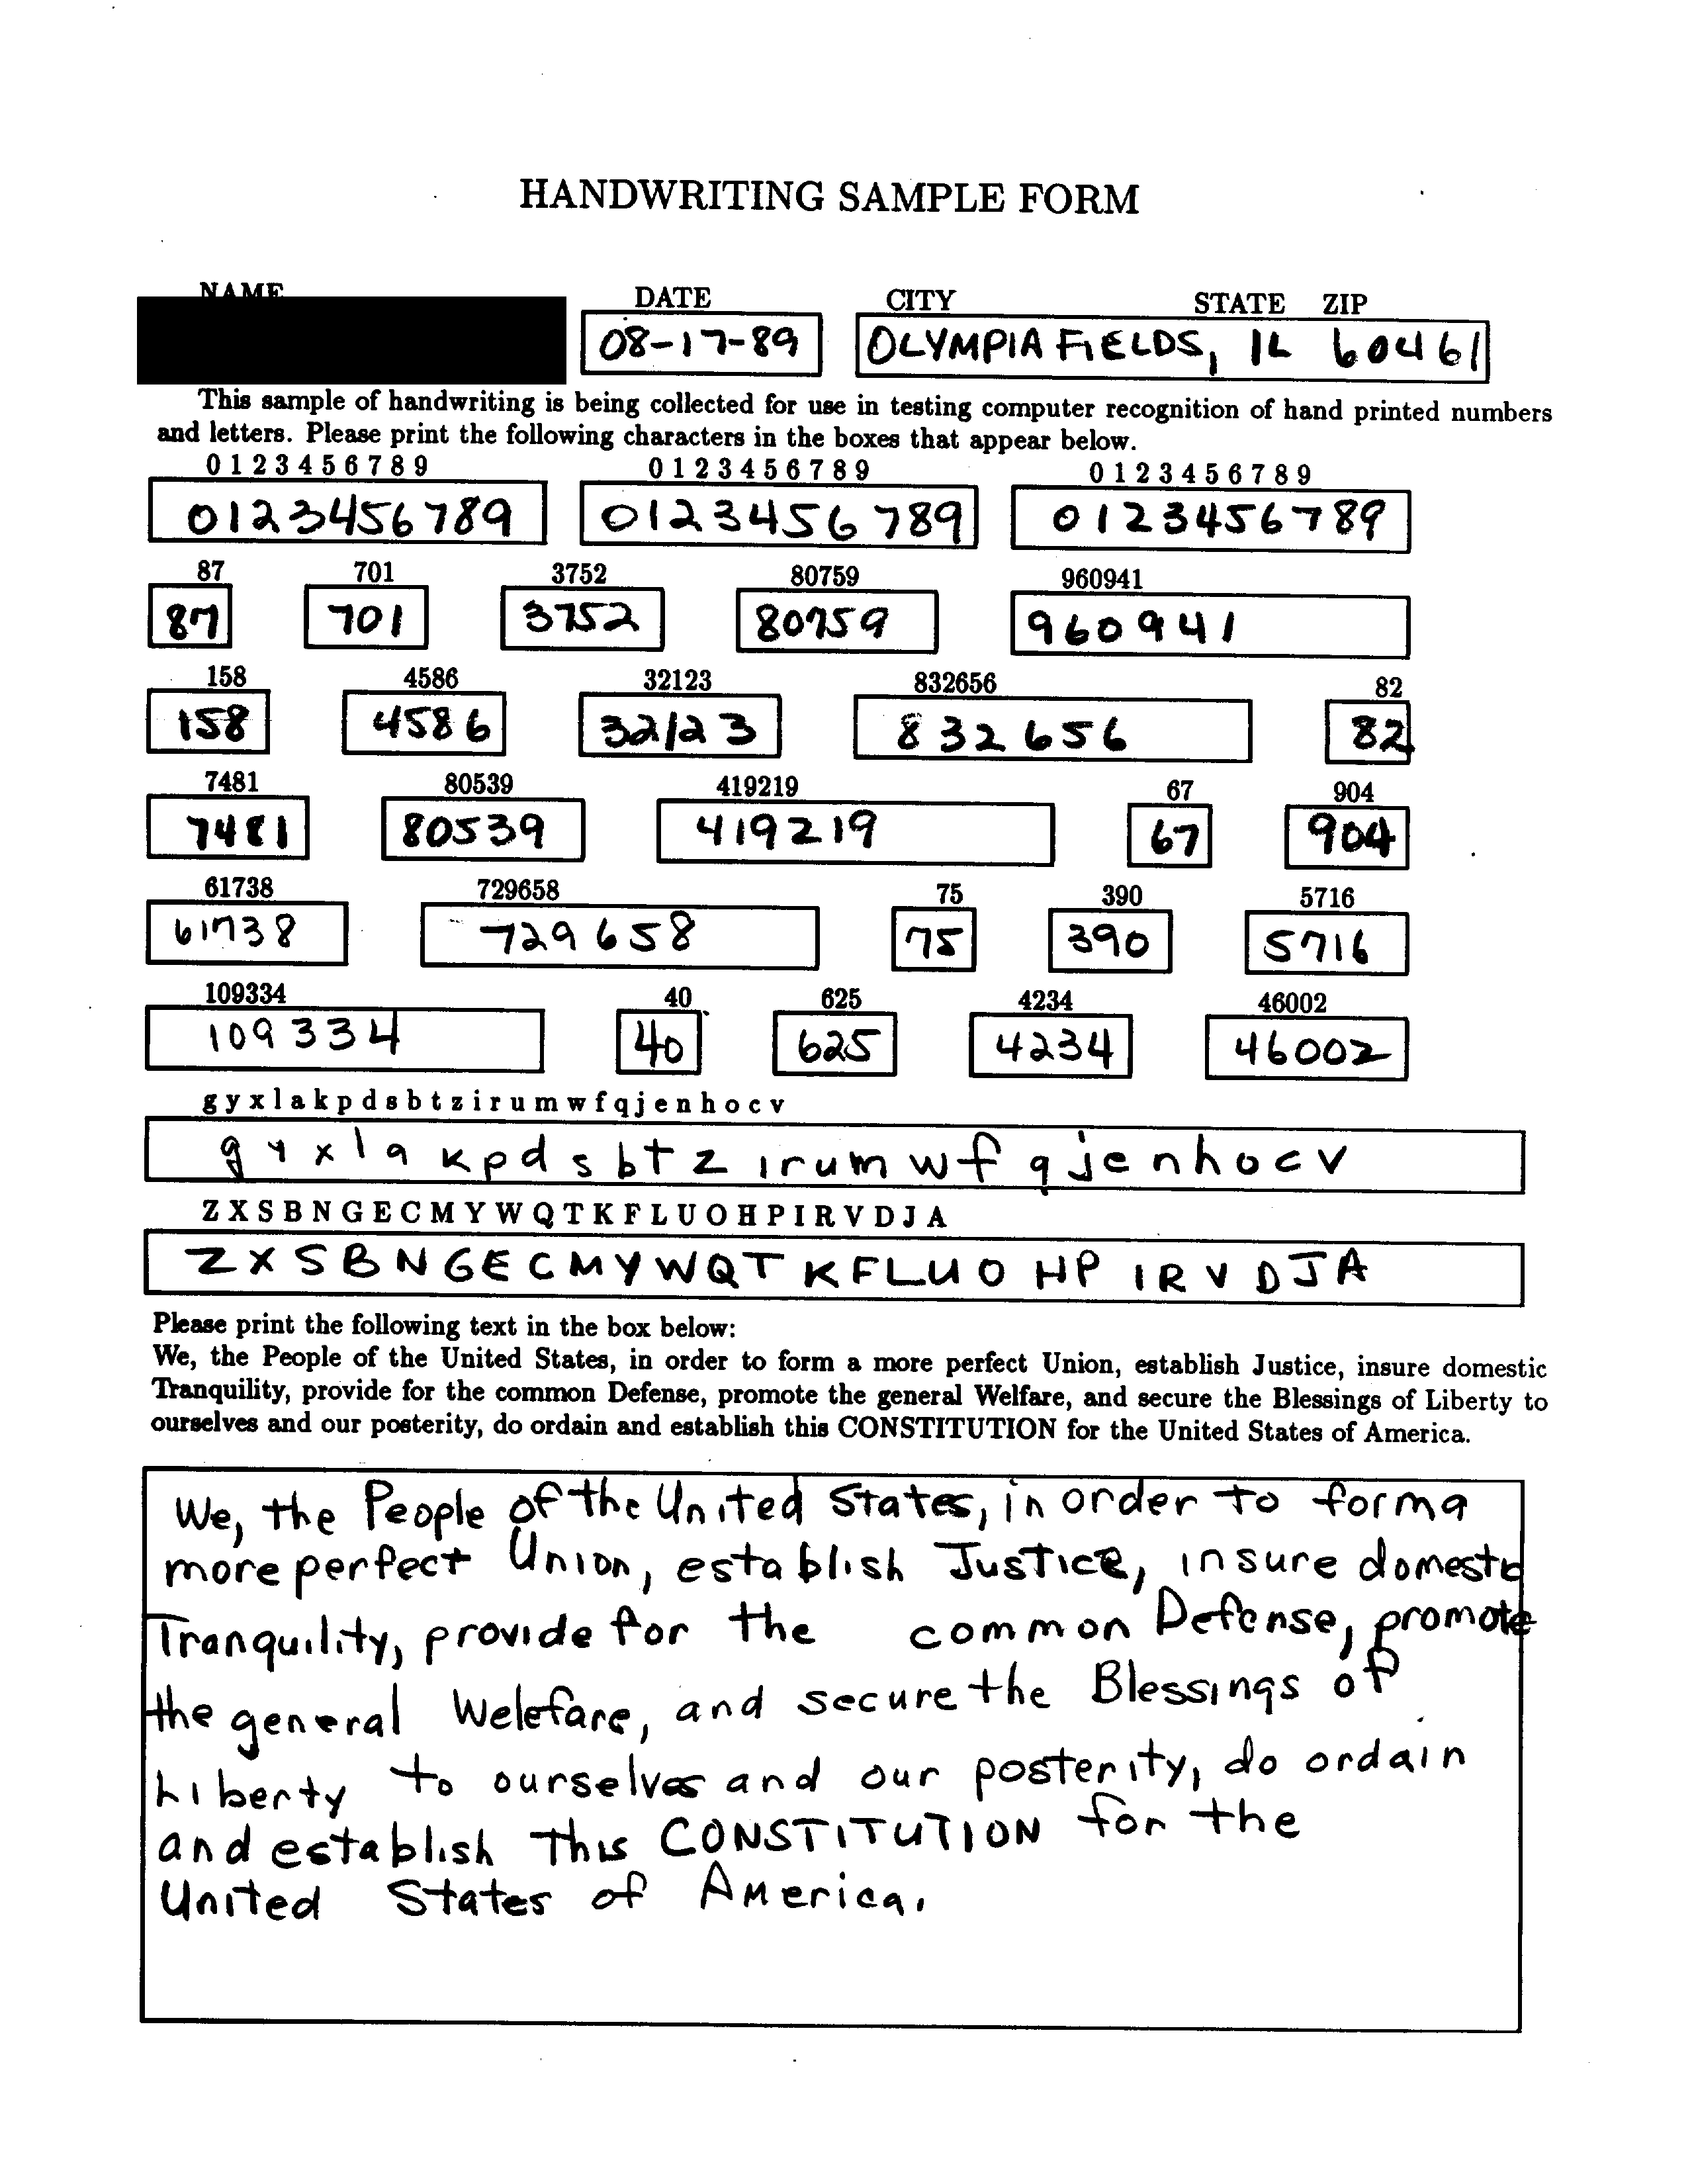 HANDWRITING SAMPLE FORM
NAME DATE CITY STATE ZIP
08-17-89 OLYMPIA FIELDS, IL 60461
This sample of handwriting is being collected for use in testing computer recognition of hand printed numbers
and letters. Please print the following characters in the boxes that appear below.
0 1 2 3 4 5 6 7 8 9 0 1 2 3 4 5 6 7 8 9 0 1 2 3 4 5 6 7 8 9
0123456789 0123456789 0123456789
87 701 3752 80759 960941
87 701 3752 80759 960941
158 4586 32123 832656 82
158 4586 32123 832656 82
7481 80539 419219 67 904
7481 80539 419219 67 904
61738 729658 75 390 5716
61738 729658 75 390 5716
109334 40 625 4234 46002
109334 40 625 4234 46002
g y x l a k p d s b t z i r u m w f q j e n h o c v
g y x l a k p d s b t z i r u m w f q j e n h o c v
Z X S B N G E C M Y W Q T K F L U O H P I R V D J A
Z X S B N G E C M Y W Q T K F L U O H P I R V D J A
Please print the following text in the box below:
We, the People of the United States, in order to form a more perfect Union, establish Justice, insure domestic
Tranquility, provide for the common Defense, promote the general Welfare, and secure the Blessings of Liberty to
ourselves and our posterity, do ordain and establish this CONSTITUTION for the United States of America.
We, the People of the United States, in order to form a
more perfect Union, establish Justice, insure domestic
Tranquility, provide for the common Defense, promote
the general Welefare, and secure the Blessings of
Liberty to ourselves and our posterity, do ordain
and establish This CONSTITUTION for the
United States of America.